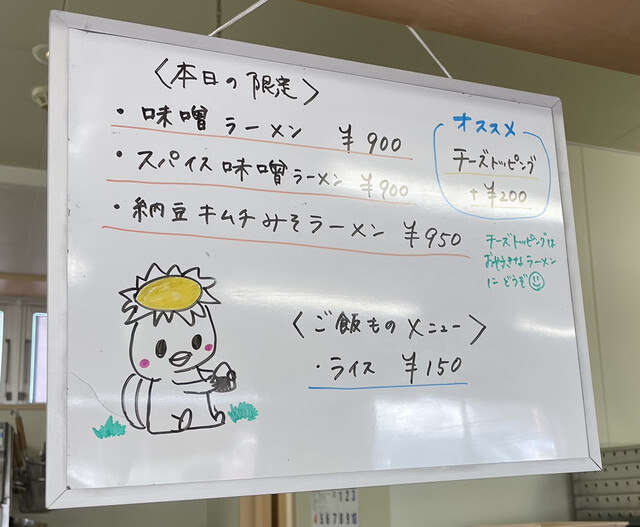 〈本日の限定〉
・味噌ラーメン ¥900
・スパイス味噌ラーメン ¥900
・納豆キムチみそラーメン ¥950
オススメ
チーズトッピング
+¥200
チーズトッピングは
お好きなラーメン
にどうぞ
〈ご飯ものメニュー〉
・ライス ¥150
1 2 3